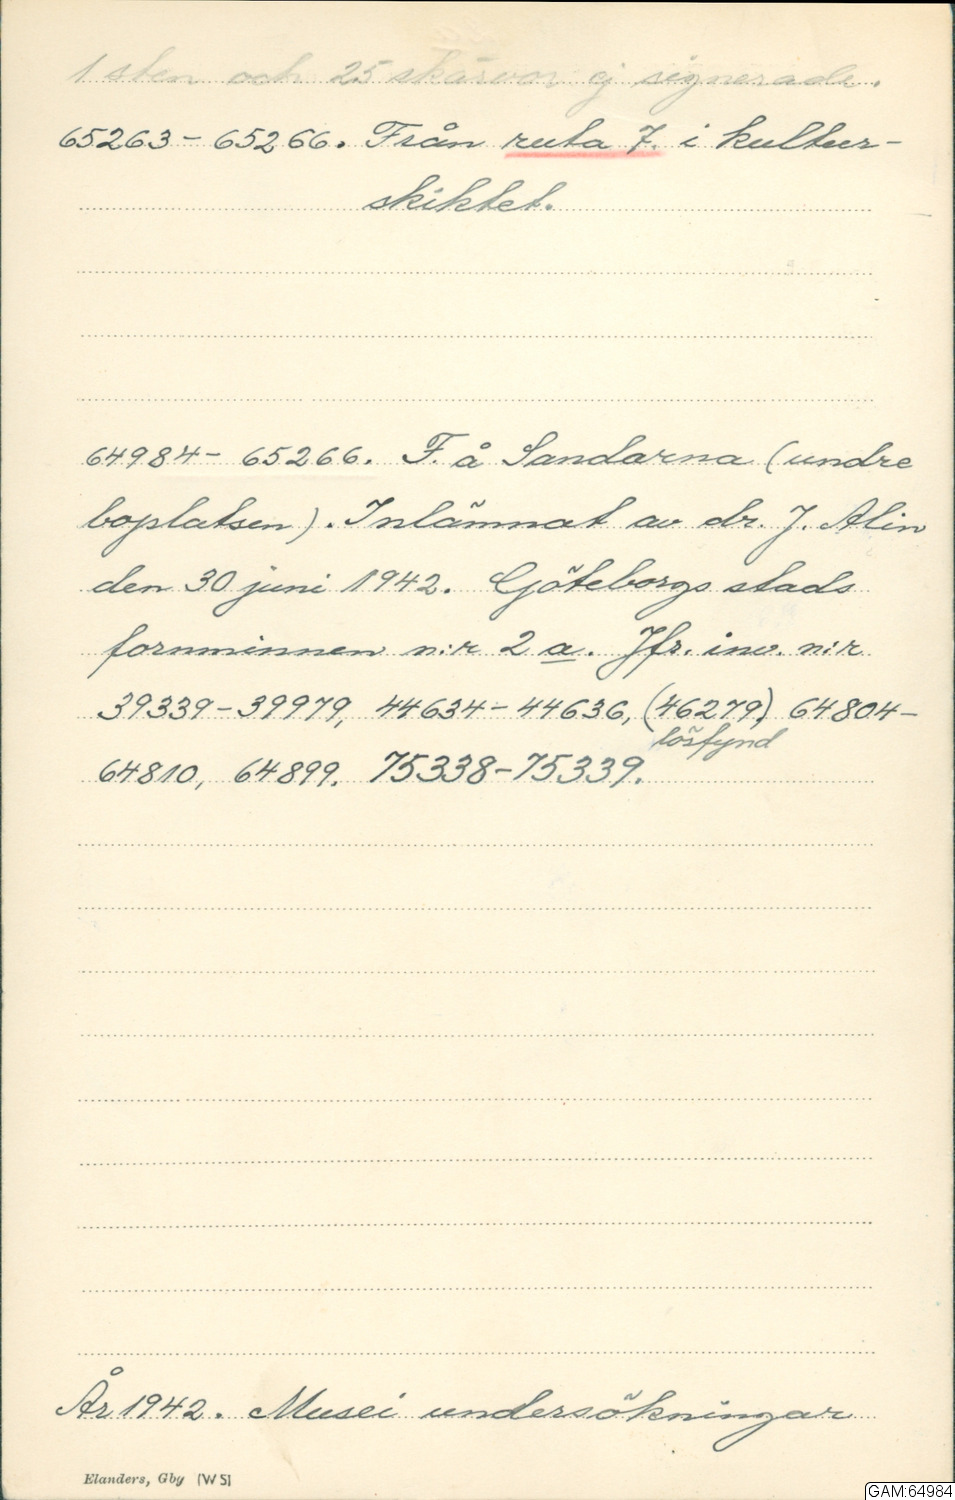 1 sten och 25 skärvor ej signerade.
65263 - 65266. Från ruta 7. i kultur-
skiktet.
64984 - 65266. F. å Sandarna (undre
boplatsen). Inlämnat av dr. J. Alin
den 30 juni 1942. Göteborgs stads
fornminnen n:r 2 a. Jfr. inv. n:r
39339 - 39979, 44634 - 44636, (46279,) 64804 -
lösfynd
64810, 64899. 75338 - 75339.
År 1942. Musei undersökningar
Elanders, Gby (W5)
GAM:64984